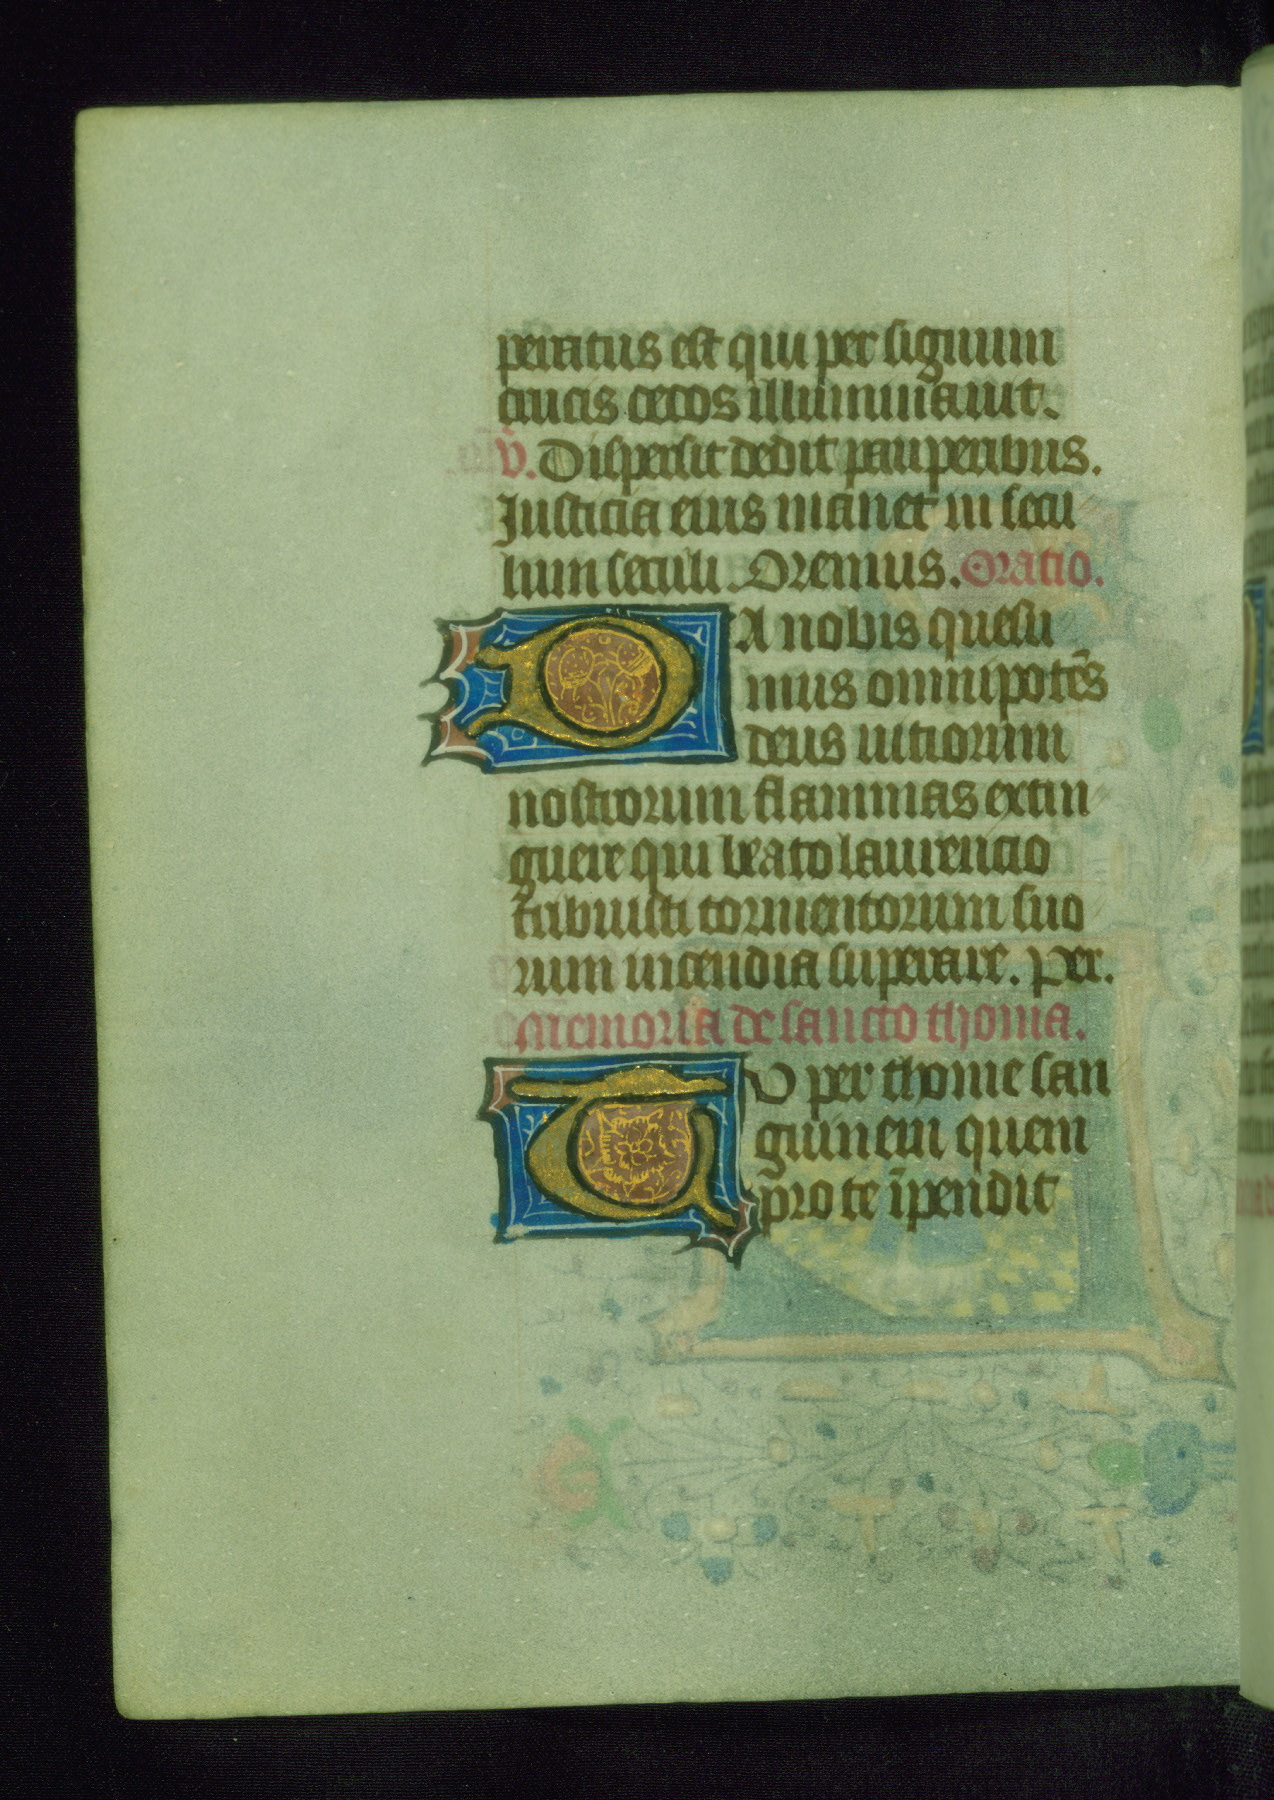 peratus est qui per signum
crucis cecos illuminauit.
v̄. Dispersit dedit pauperibus.
Justicia eius manet in secu
lum seculi. Oremus. Oratio.
DA nobis quesu
mus omnipotēs
deus uitiorum
nostrorum flammas extin
guere qui beato laurencio
tribuisti tormentorum suo
rum incendia superare. Per.
Memoria de sancto thoma.
TU per thome san
guinem quem
pro te īpendit